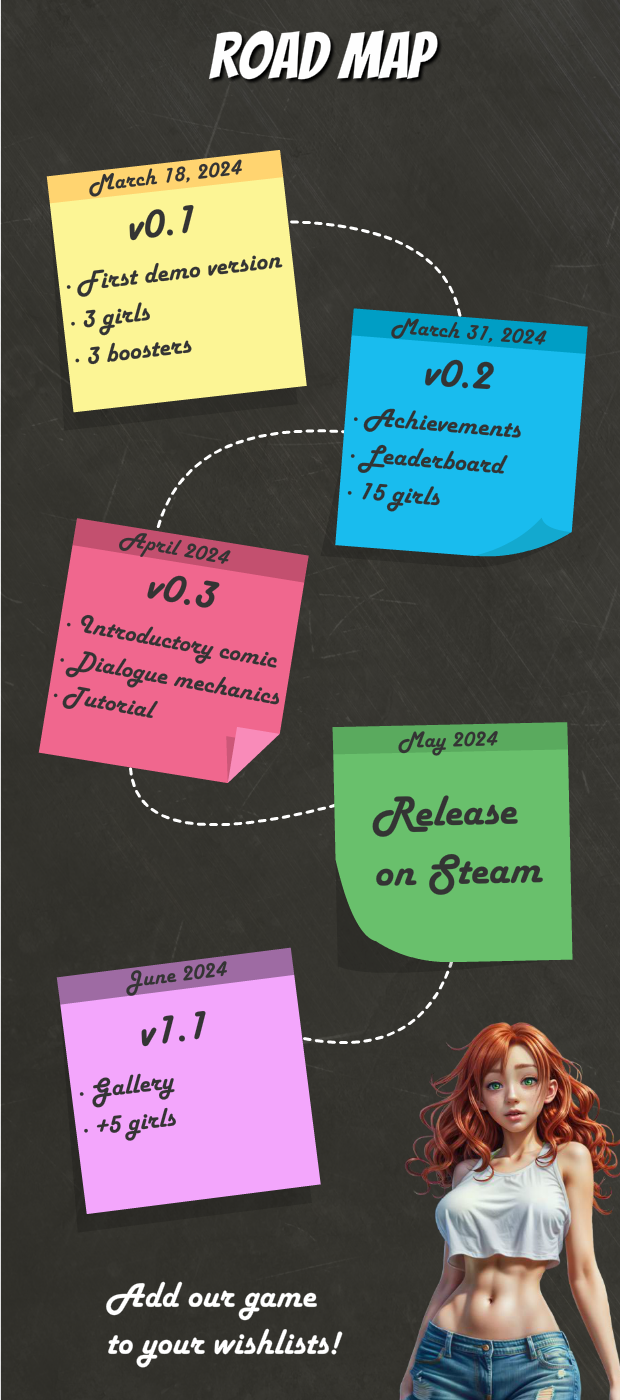 ROAD MAP
March 18, 2024
v0.1
· First demo version
· 3 girls
· 3 boosters
March 31, 2024
v0.2
· Achievements
· Leaderboard
· 15 girls
April 2024
v0.3
· Introductory comic
· Dialogue mechanics
· Tutorial
May 2024
Release
on Steam
June 2024
v1.1
· Gallery
· +5 girls
Add our game
to your wishlists!